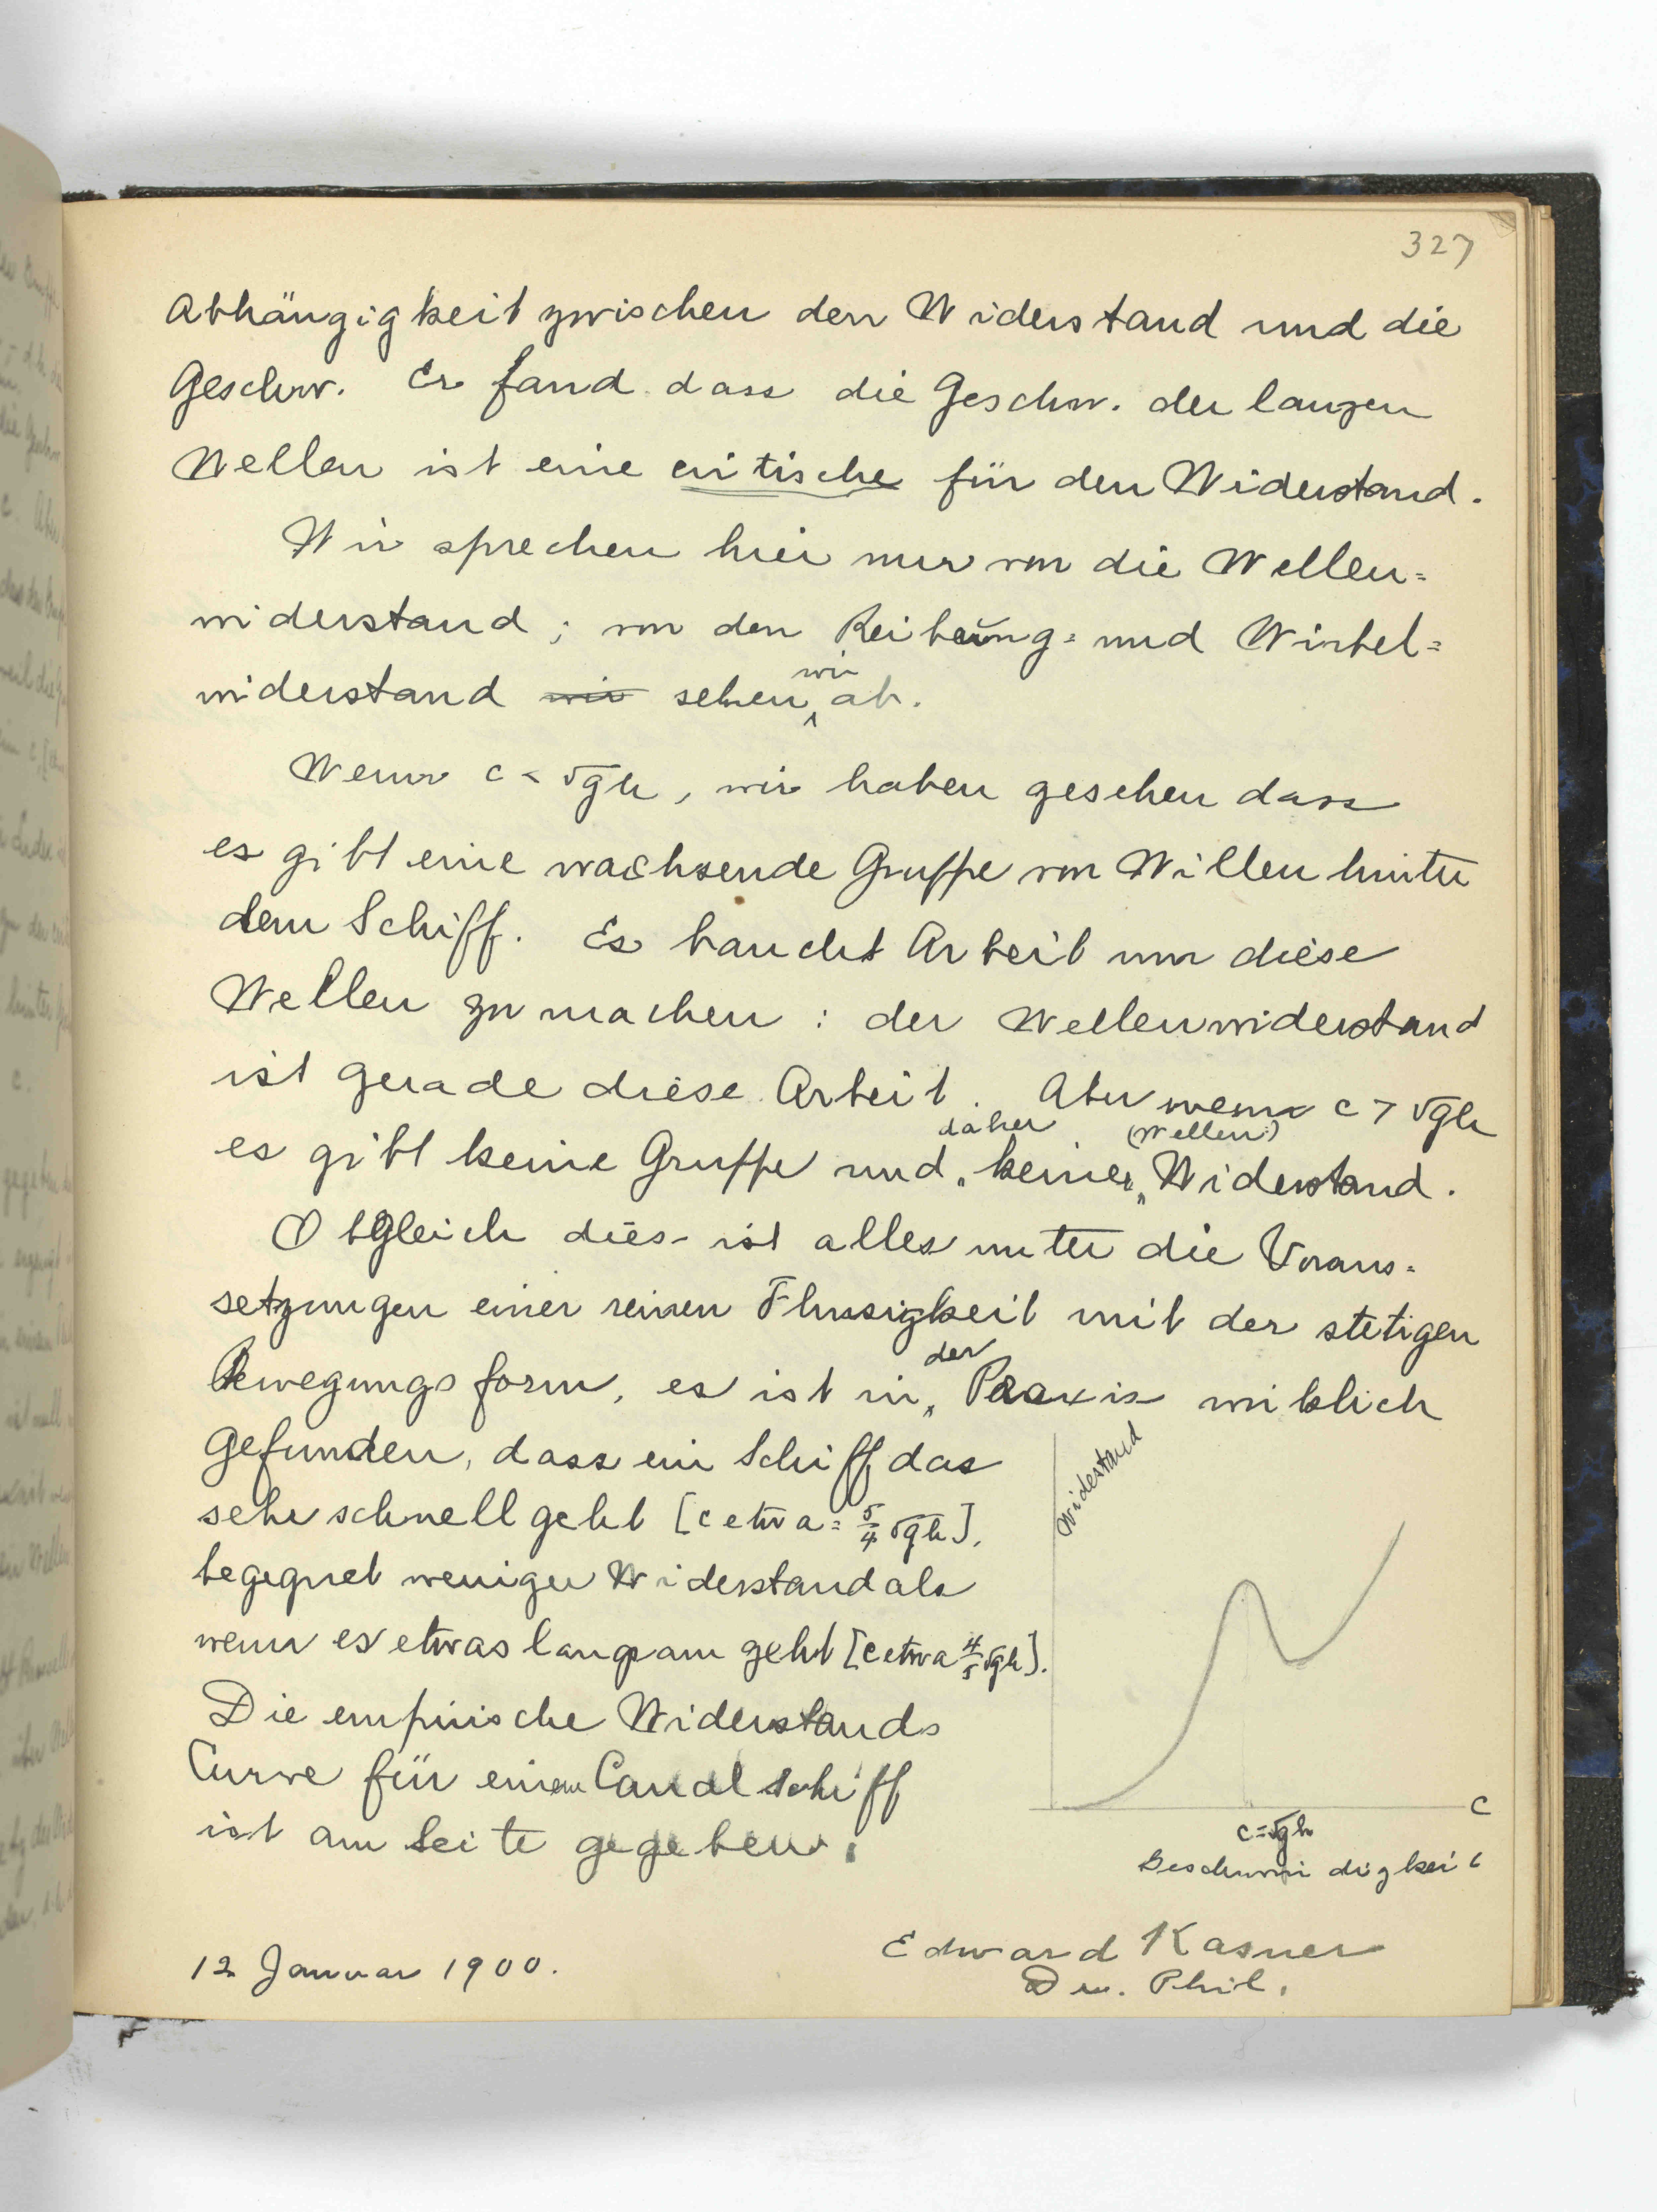 327
Abhängigkeit zwischen den Widerstand und die
Geschw. Er fand dass die Geschw. der langen
Wellen ist eine critische für den Widerstand.
Wir sprechen hier nur von die Wellen=
widerstand; von den Reibung= und Wirbel=
widerstand wir sehen wir ab.
Wenn c < √gh, wir haben gesehen dass
es gibt eine wachsende Gruppe von Willen hinter
dem Schiff. Es baucht Arbeit um diese
Wellen zu machen : der Wellenwiderstand
ist gerade diese Arbeit. Aber wenn c > √gh
es gibt keine Gruppe und daher keiner (Wellen) Widerstand.
Obgleich dies ist alles unter die Voraus=
setzungen einer reinen Flussigkeit mit der stetigen
Bewegungsform, es ist in der Praxis wirklich
gefunden, dass ein Schiff das
sehr schnell geht [c etwa = 5/4 √gh],
begegnet weniger Widerstand als
wenn es etwas langsam geht [c etwa 4/5 √gh].
Die empirische Widerstands
Curve für einen Canal schiff
ist am Seite gegeben.
Widerstand
c
c=√gh
Geschwindigkeit
12 Januar 1900.
Edward Kasner
Phil.